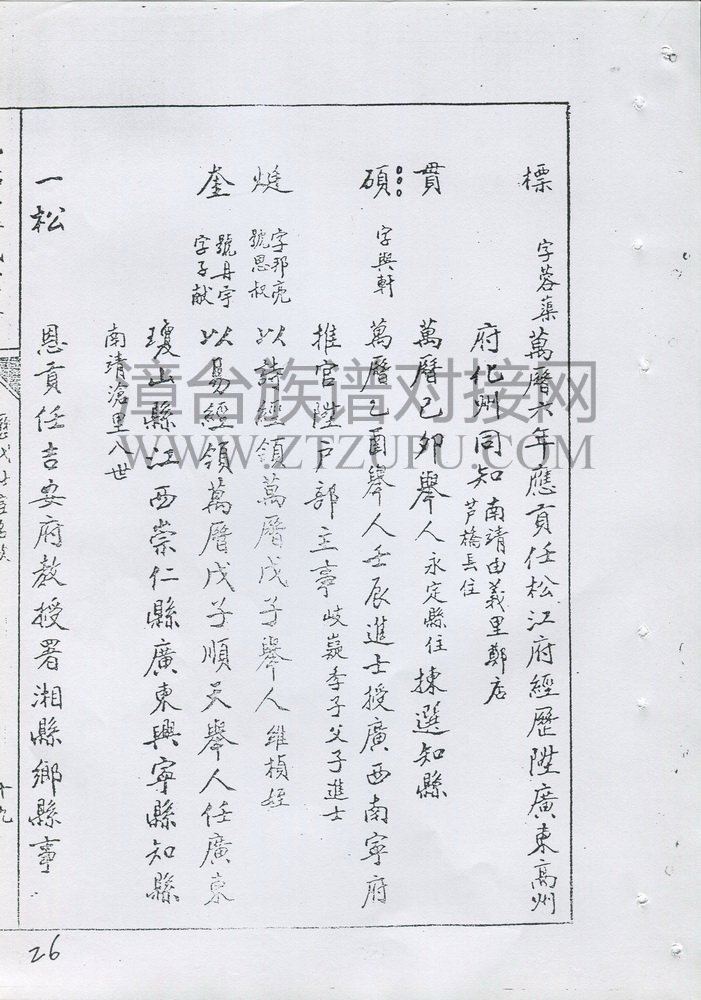 標 字蓉蕖 萬曆六年應貢任松江府經歷陞廣東高州
府化州同知 南靖由義里鄭店
芦橋長住
貫 萬曆己卯舉人 永定縣住 揀選知縣
碩 字與軒 萬曆乙酉舉人壬辰進士授廣西南寧府
推官陞戶部主事 岐嶷季子父子進士
烶 字邦亮
號思叔
以詩經領萬曆戊子舉人 維楨姪
奎 號丹宇
字子献
以易經領萬曆戊子順天舉人任廣東
瓊山縣江西崇仁縣廣東興寧縣知縣
南靖滄里八世
一松 恩貢任吉安府教授署湘縣鄉縣事
十九
26
漳台族谱对接网
WWW.ZTZUPU.COM